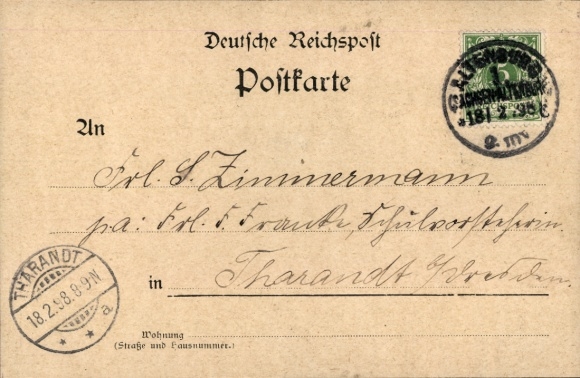 Deutsche Reichspost
Postkarte
ALTENBURG
SACHSEN-ALTENBURG
18/2 98
5
REICHSPOST
An
Frl. S. Zimmermann
pa: Frl. F. Franke, Schulvorsteherin.
in Tharandt b/Dresden.
THARANDT
18.2.98.8-9N
* * a
Wohnung
(Straße und Hausnummer.)